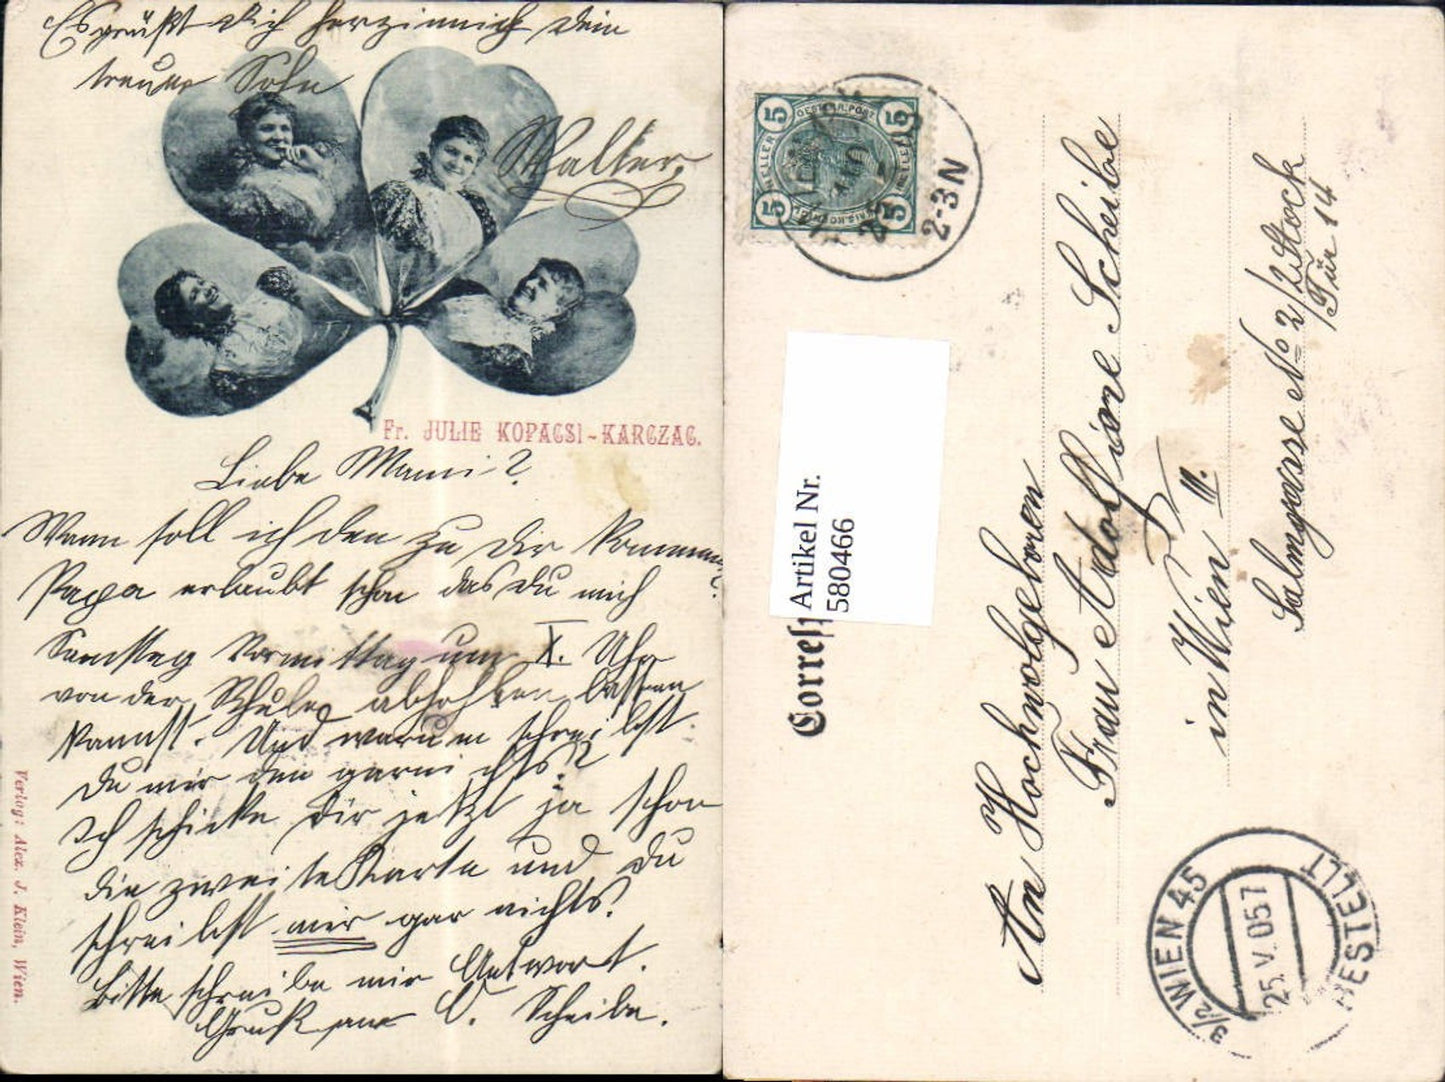 Es grüßt Dich herzinnich Dein
treuer Sohn
Walter.
Fr. JULIE KOPACSI-KARCZAG.
Liebe Mami!
Wann soll ich den zu Dir kommen?
Papa erlaubt schon das Du mich
Samstag Vormittag um X. Uhr
von der Schule abhohlen lassen
kannst. Und warum schreibst
Du mir den garnichts?
Ich schicke Dir jetzt ja schon
die zweite Karte und Du
schreibst mir gar nichts.
Bitte schreibe mir Antwort.
Gruß an O. Scheibe.
Verlag: Alex. J. Klein, Wien.
5 5 5 5
OESTERR. POST
HELLER HELLER
WIEN
25
2-3N
Artikel Nr.
580466
Corresp
An Hochwolgeboren
Frau Adolfine Scheibe
in Wien III.
Salmgasse No 2/2. Stock
Tür 14
3/2 WIEN 45
25.V.05 7
BESTELLT